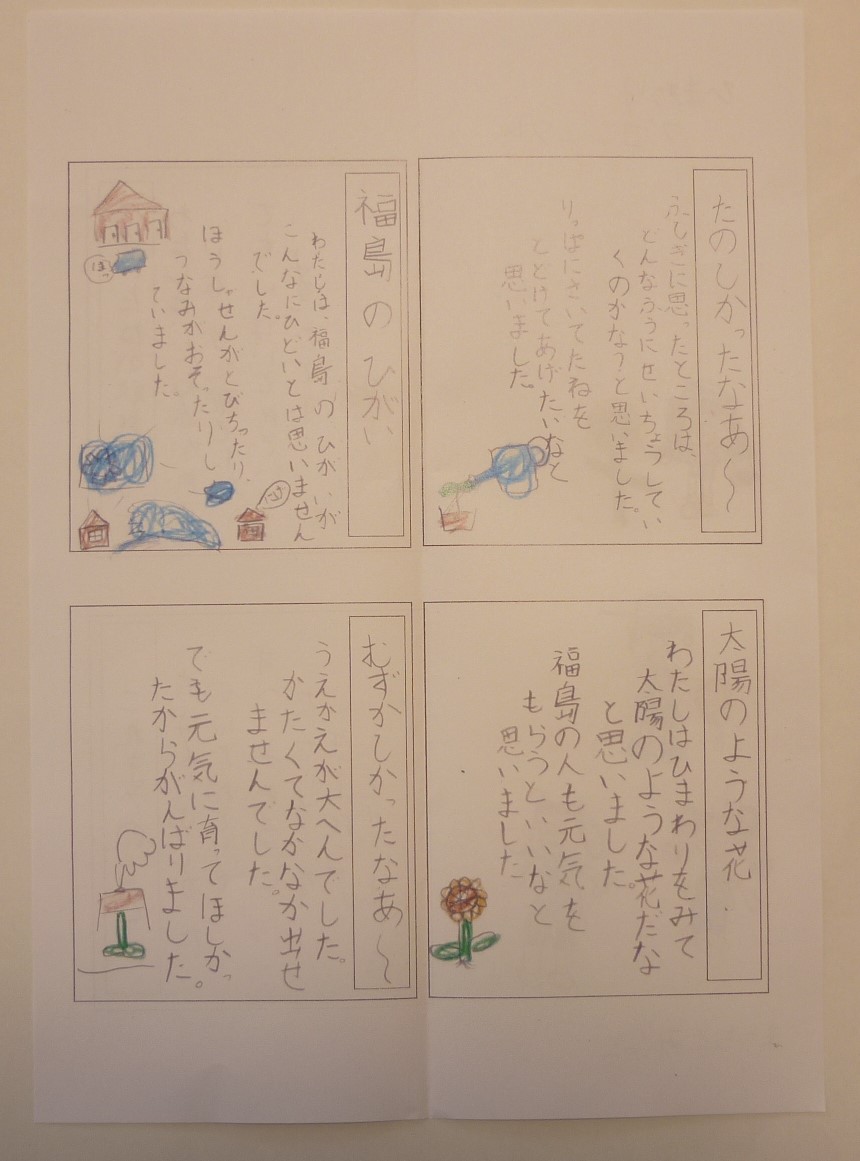 たのしかったなあ〜
ふしぎに思ったところは、
どんなふうにせいちょうしてい
くのかな？と思いました。
りっぱにさいてたねを
とどけてあげたいなと
思いました。
福島のひがい
わたしは、福島のひがいが
こんなにひどいとは思いません
でした。
ほうしゃせんがとびちったり、
つなみがおそったりし
ていました。
太陽のような花
わたしはひまわりをみて
太陽のような花だな
と思いました。
福島の人も元気を
もらうといいなと
思いました
むずかしかったなあ〜
うえかえが大へんでした。
かたくてなかなか出せ
ませんでした。
でも元気に育ってほしかっ
たからがんばりました。